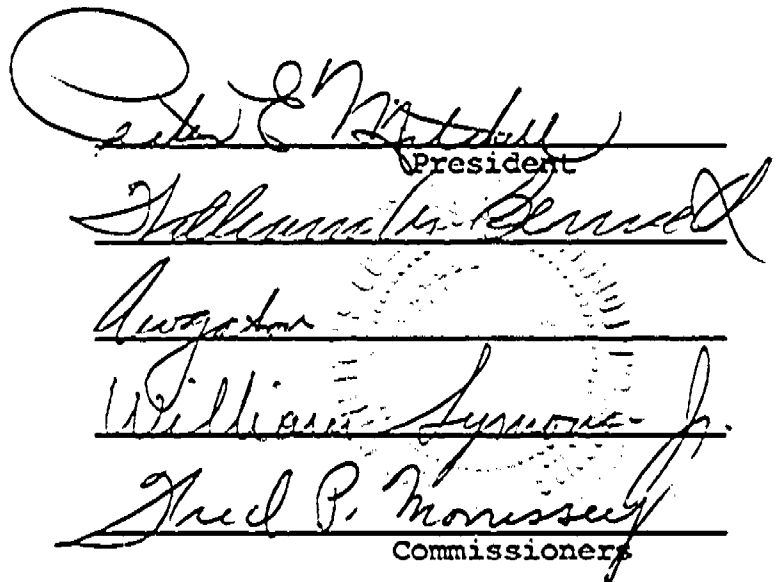 Peter E Mitchell
President
William Bennett
William Symons Jr.
Fred P. Morrissey
Commissioners